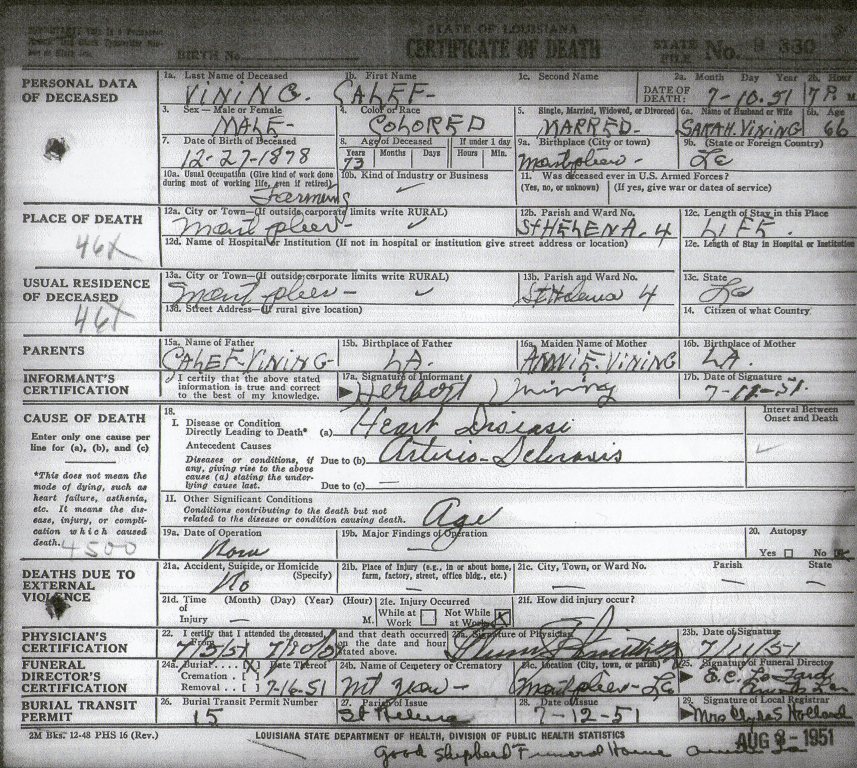 STATE OF LOUISIANA
CERTIFICATE OF DEATH
BIRTH No.
STATE FILE No. 9 330
PERSONAL DATA OF DECEASED
1a. Last Name of Deceased 1b. First Name 1c. Second Name 2a. Month Day Year 2b. Hour
VINING. CALEF- DATE OF DEATH: 7-10-51 7 P. M
3. Sex — Male or Female 4. Color or Race 5. Single, Married, Widowed, or Divorced 6a. Name of Husband or Wife 6b. Age
MALE- COLORED MARRED- SARAH. VINING 66
7. Date of Birth of Deceased 8. Age of Deceased If under 1 day 9a. Birthplace (City or town) 9b. (State or Foreign Country)
Years Months Days Hours Min.
12-27-1878 73 Montpleer- La
10a. Usual Occupation (Give kind of work done during most of working life, even if retired) 10b. Kind of Industry or Business 11. Was deceased ever in U.S. Armed Forces?
(Yes, no, or unknown) (If yes, give war or dates of service)
Farming
PLACE OF DEATH
12a. City or Town—(If outside corporate limits write RURAL) 12b. Parish and Ward No. 12c. Length of Stay in this Place
Montpleer- St HELENA. 4 LIFE.
46X
12d. Name of Hospital or Institution (If not in hospital or institution give street address or location) 12e. Length of Stay in Hospital or Institution
USUAL RESIDENCE OF DECEASED
13a. City or Town—(If outside corporate limits write RURAL) 13b. Parish and Ward No. 13c. State
Montpleer- St Helena 4 La
46X
13d. Street Address—(If rural give location) 14. Citizen of what Country
PARENTS
15a. Name of Father 15b. Birthplace of Father 16a. Maiden Name of Mother 16b. Birthplace of Mother
CALEF. VINING- LA. ANNIE. VINING LA.
INFORMANT'S CERTIFICATION
I certify that the above stated information is true and correct to the best of my knowledge.
17a. Signature of Informant 17b. Date of Signature
Herbert Vining 7-11-51.
CAUSE OF DEATH
Enter only one cause per line for (a), (b), and (c)
*This does not mean the mode of dying, such as heart failure, asthenia, etc. It means the disease, injury, or complication which caused death.
4500
18. Interval Between Onset and Death
I. Disease or Condition Directly Leading to Death* (a) Heart Disiasi
Antecedent Causes
Diseases or conditions, if any, giving rise to the above cause (a) stating the underlying cause last.
Due to (b) Arterio-Sclerosis
Due to (c) —
II. Other Significant Conditions
Conditions contributing to the death but not related to the disease or condition causing death.
Age
19a. Date of Operation 19b. Major Findings of Operation 20. Autopsy
None — Yes No
DEATHS DUE TO EXTERNAL VIOLENCE
21a. Accident, Suicide, or Homicide (Specify) 21b. Place of Injury (e.g., in or about home, farm, factory, street, office bldg., etc.) 21c. City, Town, or Ward No. Parish State
No — — — —
21d. Time of Injury (Month) (Day) (Year) (Hour) M. 21e. Injury Occurred 21f. How did injury occur?
While at Work Not While at Work
PHYSICIAN'S CERTIFICATION
22. I certify that I attended the deceased From and that death occurred on the date and hour stated above. 23a. Signature of Physician 23b. Date of Signature
7/3/51 7/10/51 7/11/51
FUNERAL DIRECTOR'S CERTIFICATION
24a. Burial (X) Date Thereof 24b. Name of Cemetery or Crematory 24c. Location (City, town, or parish) 25. Signature of Funeral Director
Cremation [ ]
Removal [ ] 7-16-51 Mt Zion- Montpleer- La
BURIAL TRANSIT PERMIT
26. Burial Transit Permit Number 27. Parish of Issue 28. Date of Issue 29. Signature of Local Registrar
15 St Helena 7-12-51 Mrs Clyde S Holland
2M Bks. 12-48 PHS 16 (Rev.) LOUISIANA STATE DEPARTMENT OF HEALTH, DIVISION OF PUBLIC HEALTH STATISTICS AUG 1951
Good Shepherd Funeral Home